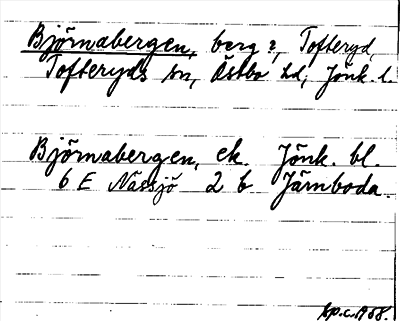 Björnabergen, berg ?, Tofteryd,
Tofteryds sn, Östbo hd, Jönk. l.
Björnabergen, ek. Jönk. bl.
6 E Nässjö 2 b Järnboda.
Xp.c. 1958.